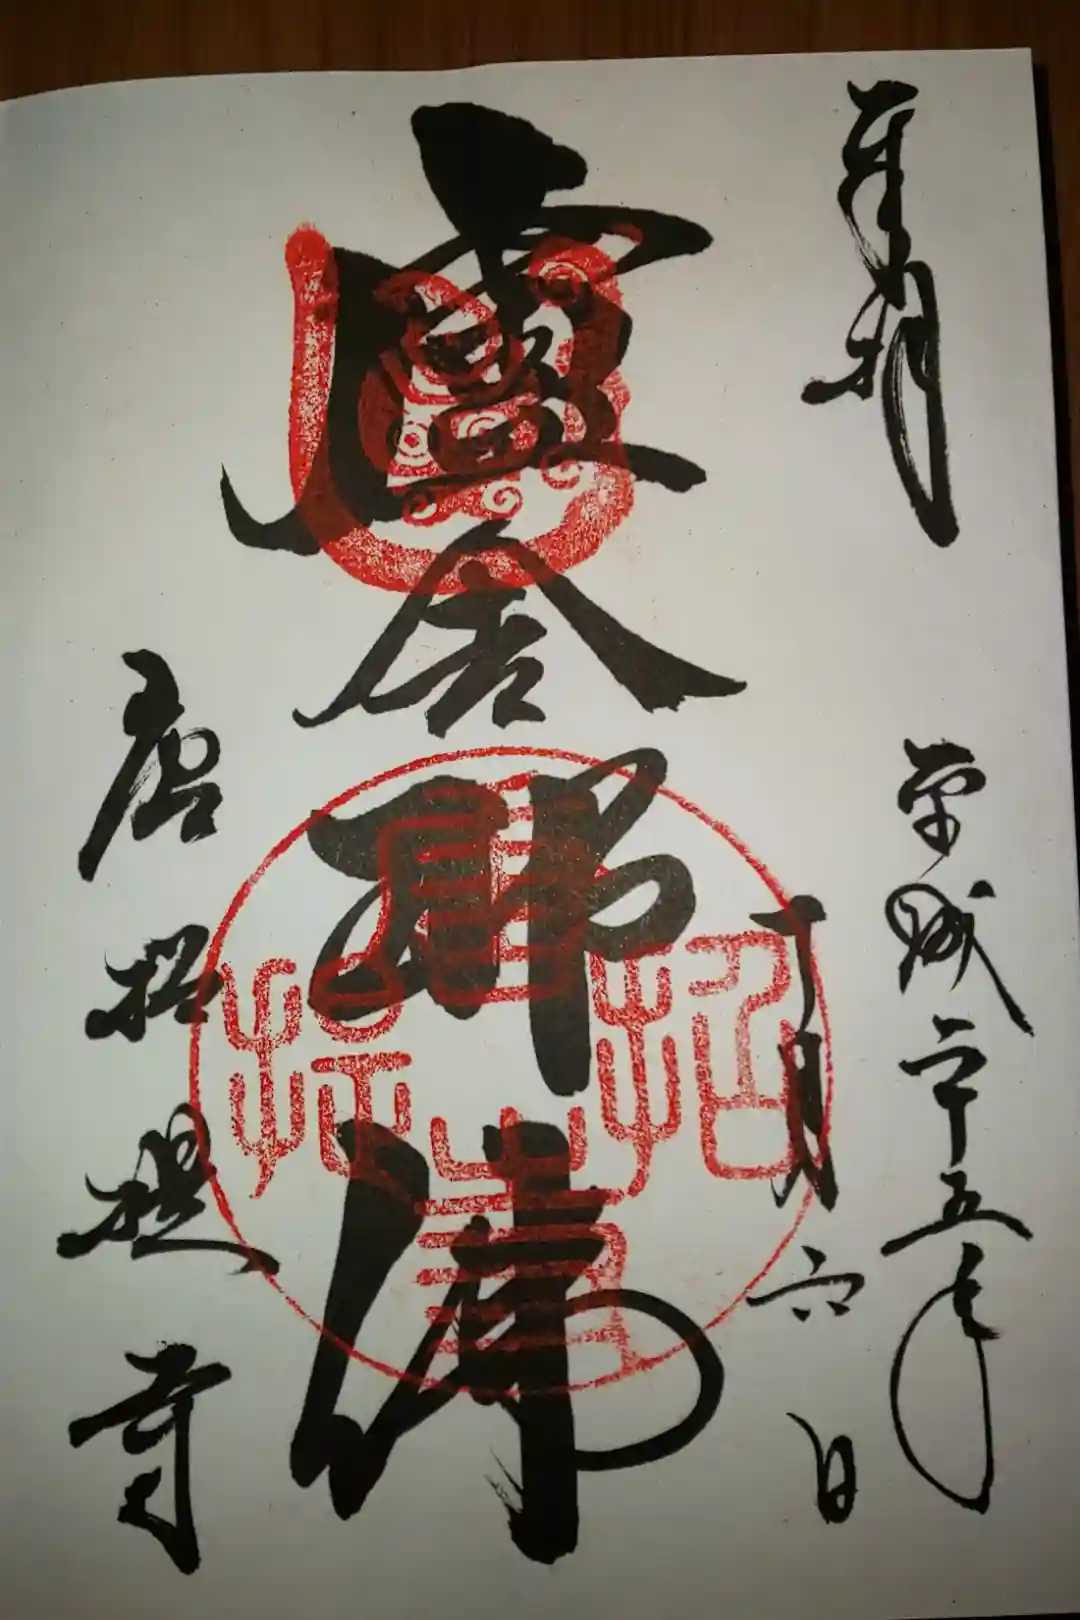 奉拝
平成二十五年
月六日
盧舎那佛
唐招提寺